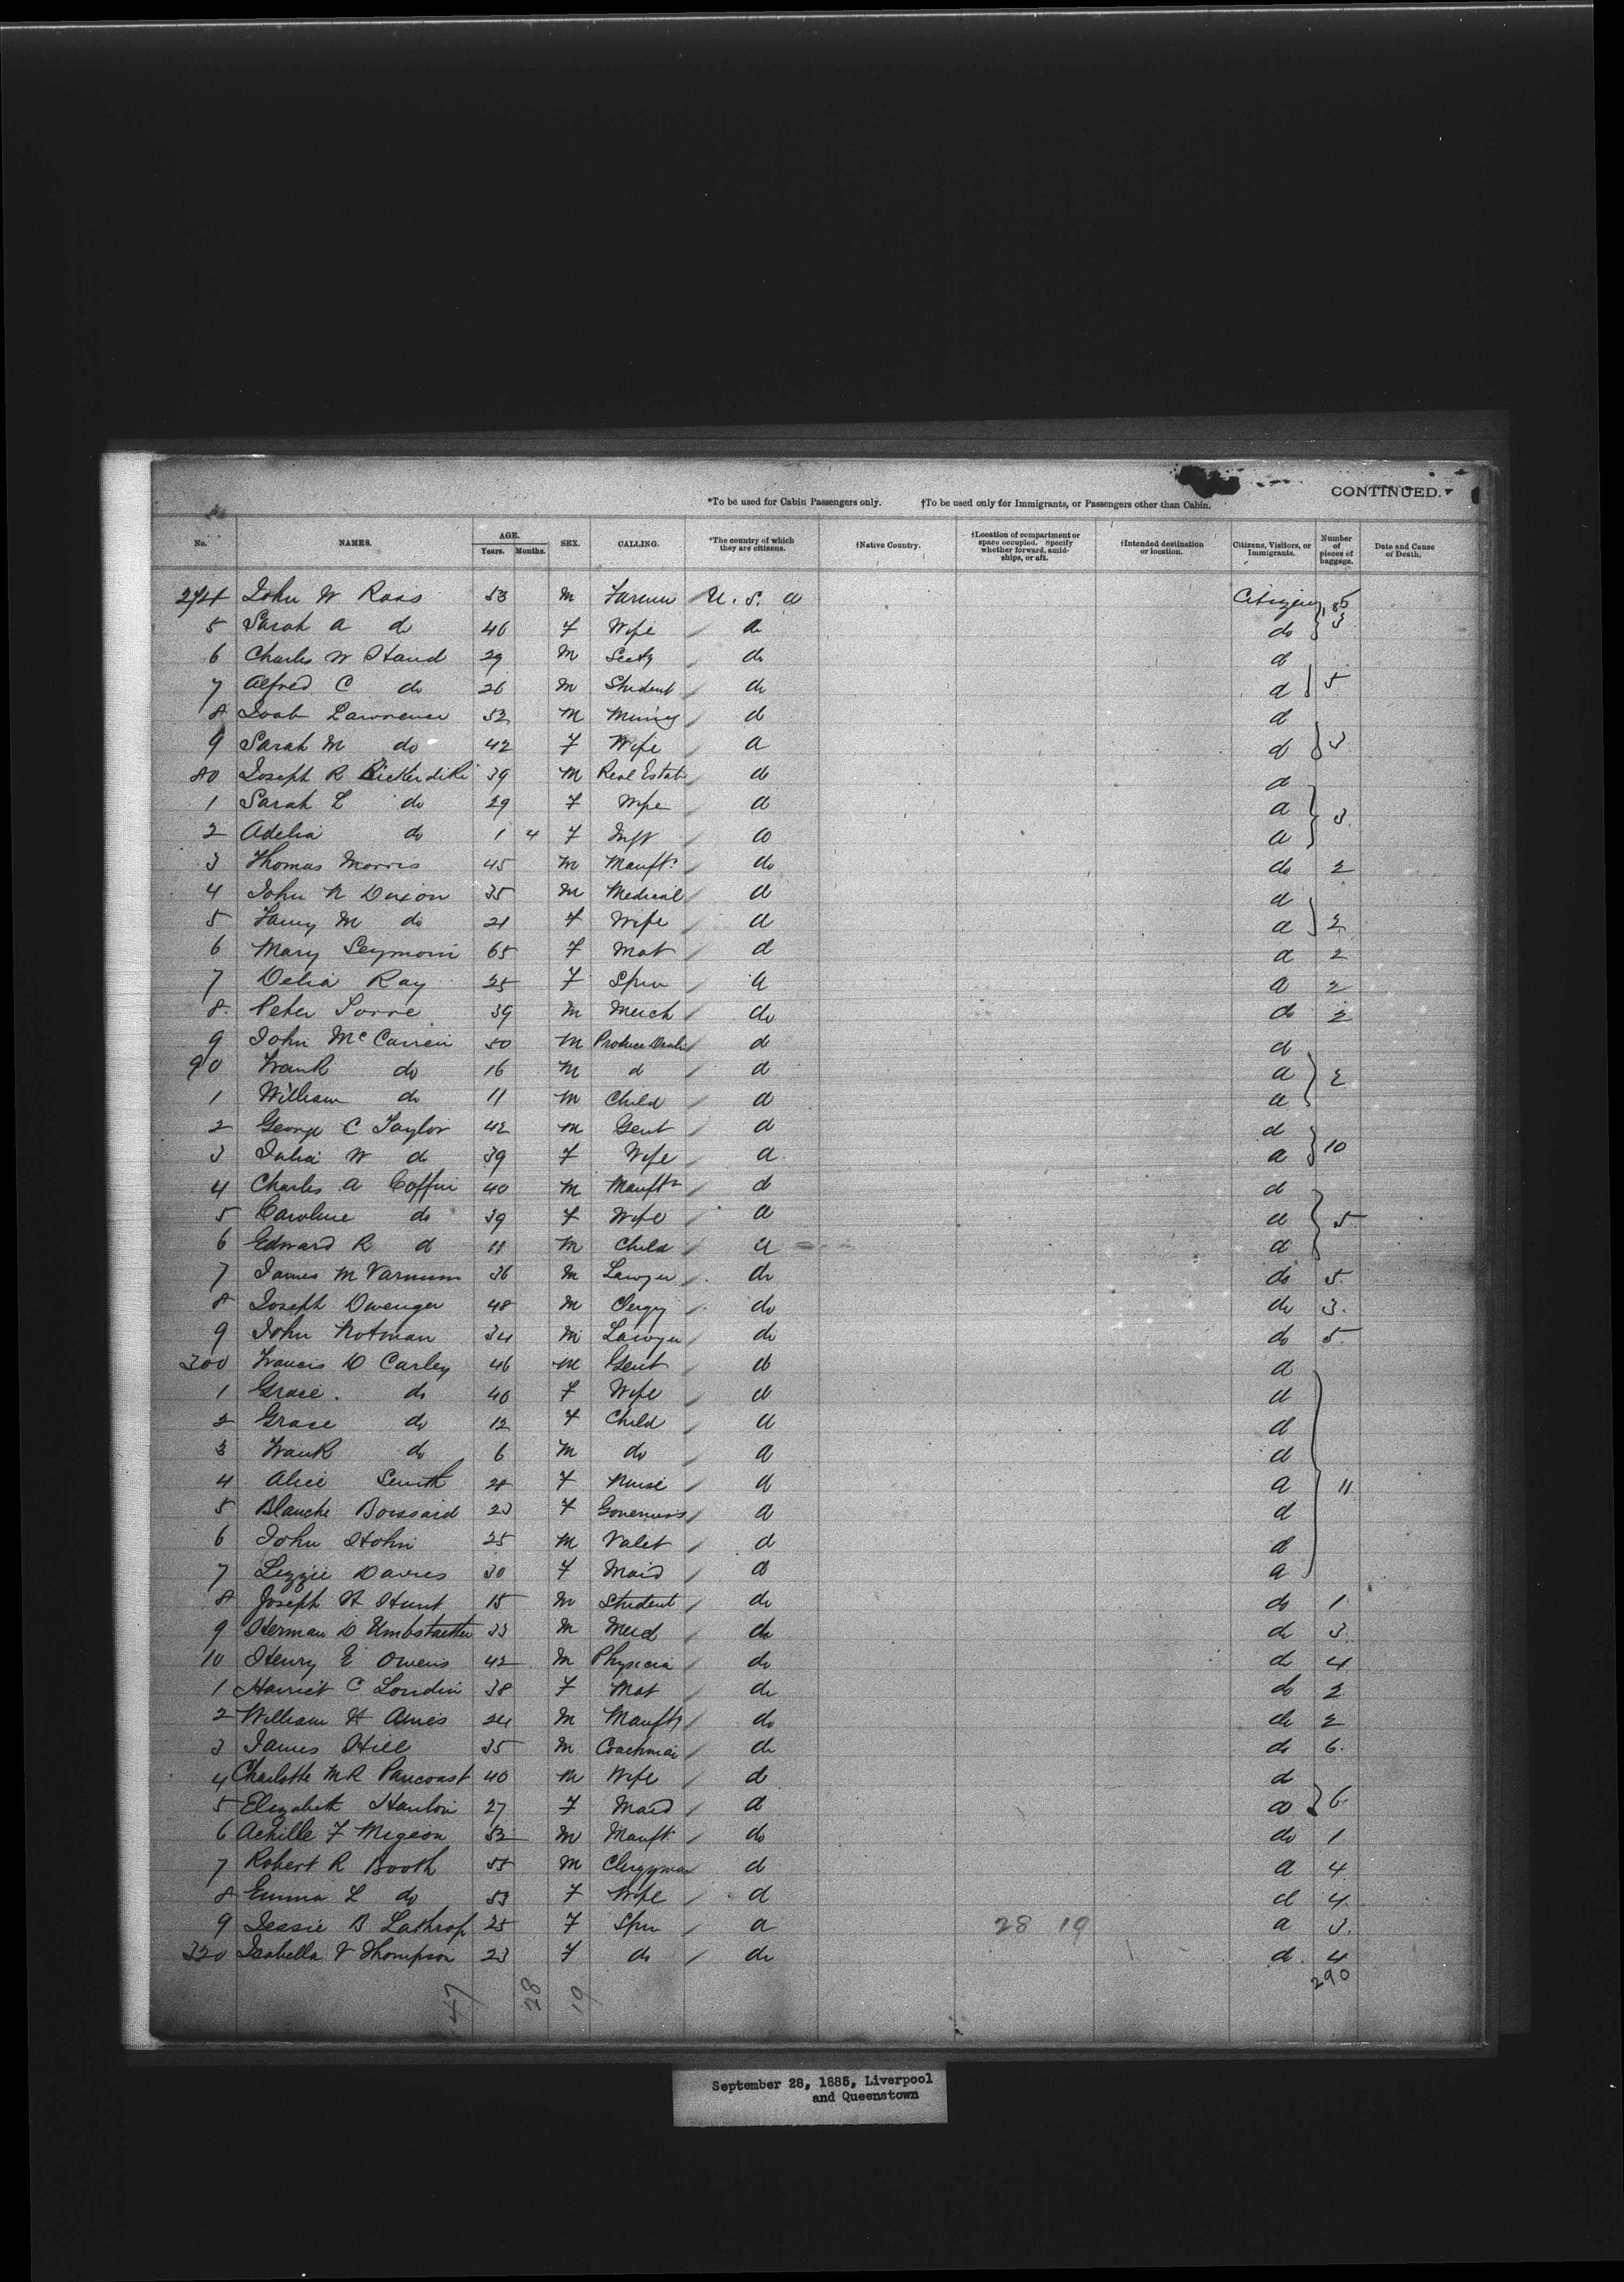 CONTINUED.
*To be used for Cabin Passengers only. †To be used only for Immigrants, or Passengers other than Cabin.
No. NAMES. AGE. Years. Months. SEX. CALLING. *The country of which they are citizens. †Native Country. †Location of compartment or space occupied. Specify whether forward, amidships, or aft. †Intended destination or location. Citizens, Visitors, or Immigrants. Number of pieces of baggage. Date and Cause of Death.
274 John W 53 M U. S. a
5 Sarah a do 46 F Wife do do 3
6 Charles W Hand 29 M Secty do do
7 Alfred C do 26 M Student do do 5
8 Lawrence 52 M do do
9 Sarah M do 42 F Wife do do 3
80 Joseph R Bickerdike 39 M Real Estate do do
1 Sarah L do 29 F Wife do do
2 Adelia do 1 4 F Inft do do 3
3 Thomas Morris 45 M Manftr do do 2
4 John N Dixon 35 M Medical do do
5 Fanny M do 21 F Wife do do 2
6 Mary Seymour 65 F Mat do do 2
7 Delia Ray 25 F Spin do do 2
8 Peter 39 M Merch do do 2
9 John 50 M Produce Dealer do do
90 Frank do 16 M do do do 2
1 William do 11 M Child do do
2 George C Taylor 42 M Gent do do
3 Julia W do 39 F Wife do do 10
4 Charles A Coffin 40 M Manftr do do
5 Caroline do 39 F Wife do do 5
6 Edward R do 11 M Child do do
7 James M Varnum 36 M Lawyer do do 5
8 Joseph Dwenger 48 M Clergy do do 3
9 John Notman 34 M Lawyer do do 5
300 Francis D Carley 46 M Gent do do
1 Grace do 40 F Wife do do
2 Grace do 12 F Child do do
3 Frank do 6 M do do do
4 Alice Smith 28 F Nurse do do 11
5 Blanche Boissard 23 F Governess do do
6 John Hohn 25 M Valet do do
7 Lizzie Davies 30 F Maid do do
8 Joseph H Hunt 15 M Student do do 1
9 Herman D Umbstaetter 33 M do do 3
10 Henry E Owens 42 M Physician do do 4
1 Harriet C 38 F Mat do do 2
2 William H Ames 24 M Manftr do do 2
3 James Hill 35 M Coachman do do 6
4 Charlotte M R Pancoast 40 M Wife do do
5 Elizabeth Hanlon 27 F Maid do do 6
6 Achille F Migeon 52 M Manft do do 1
7 Robert R Booth 55 M Clergyman do do 4
8 Emma L do 53 F Wife do do 4
9 Jessie B Lathrop 25 F Spin do 28 19 do 3
320 Isabella V Thompson 23 F do do do 4
290
47 28 19
September 28, 1885, Liverpool
and Queenstown